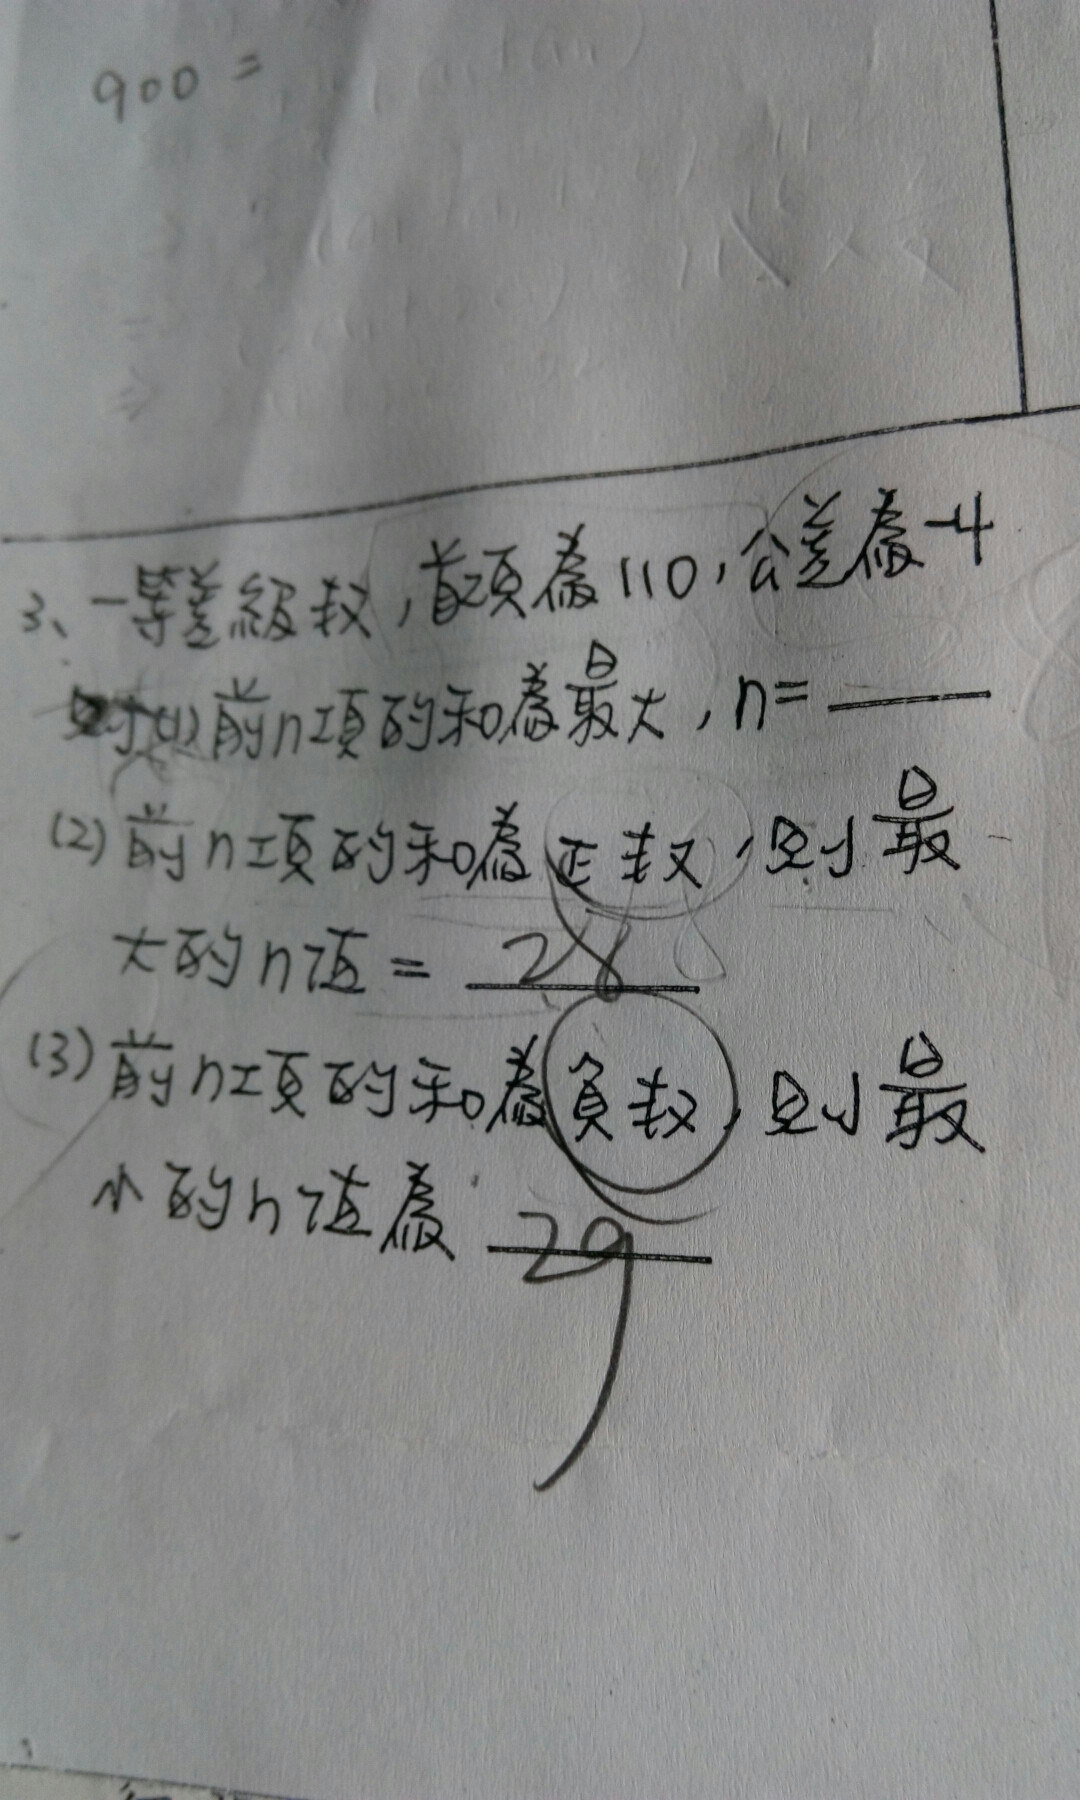 900 =
3、一等差級数,首項為110,公差為-4
則(1)前n項的和為最大,n=
(2)前n項的和為正数,則最
大的n值= 28
(3)前n項的和為負数,則最
小的n值為 29